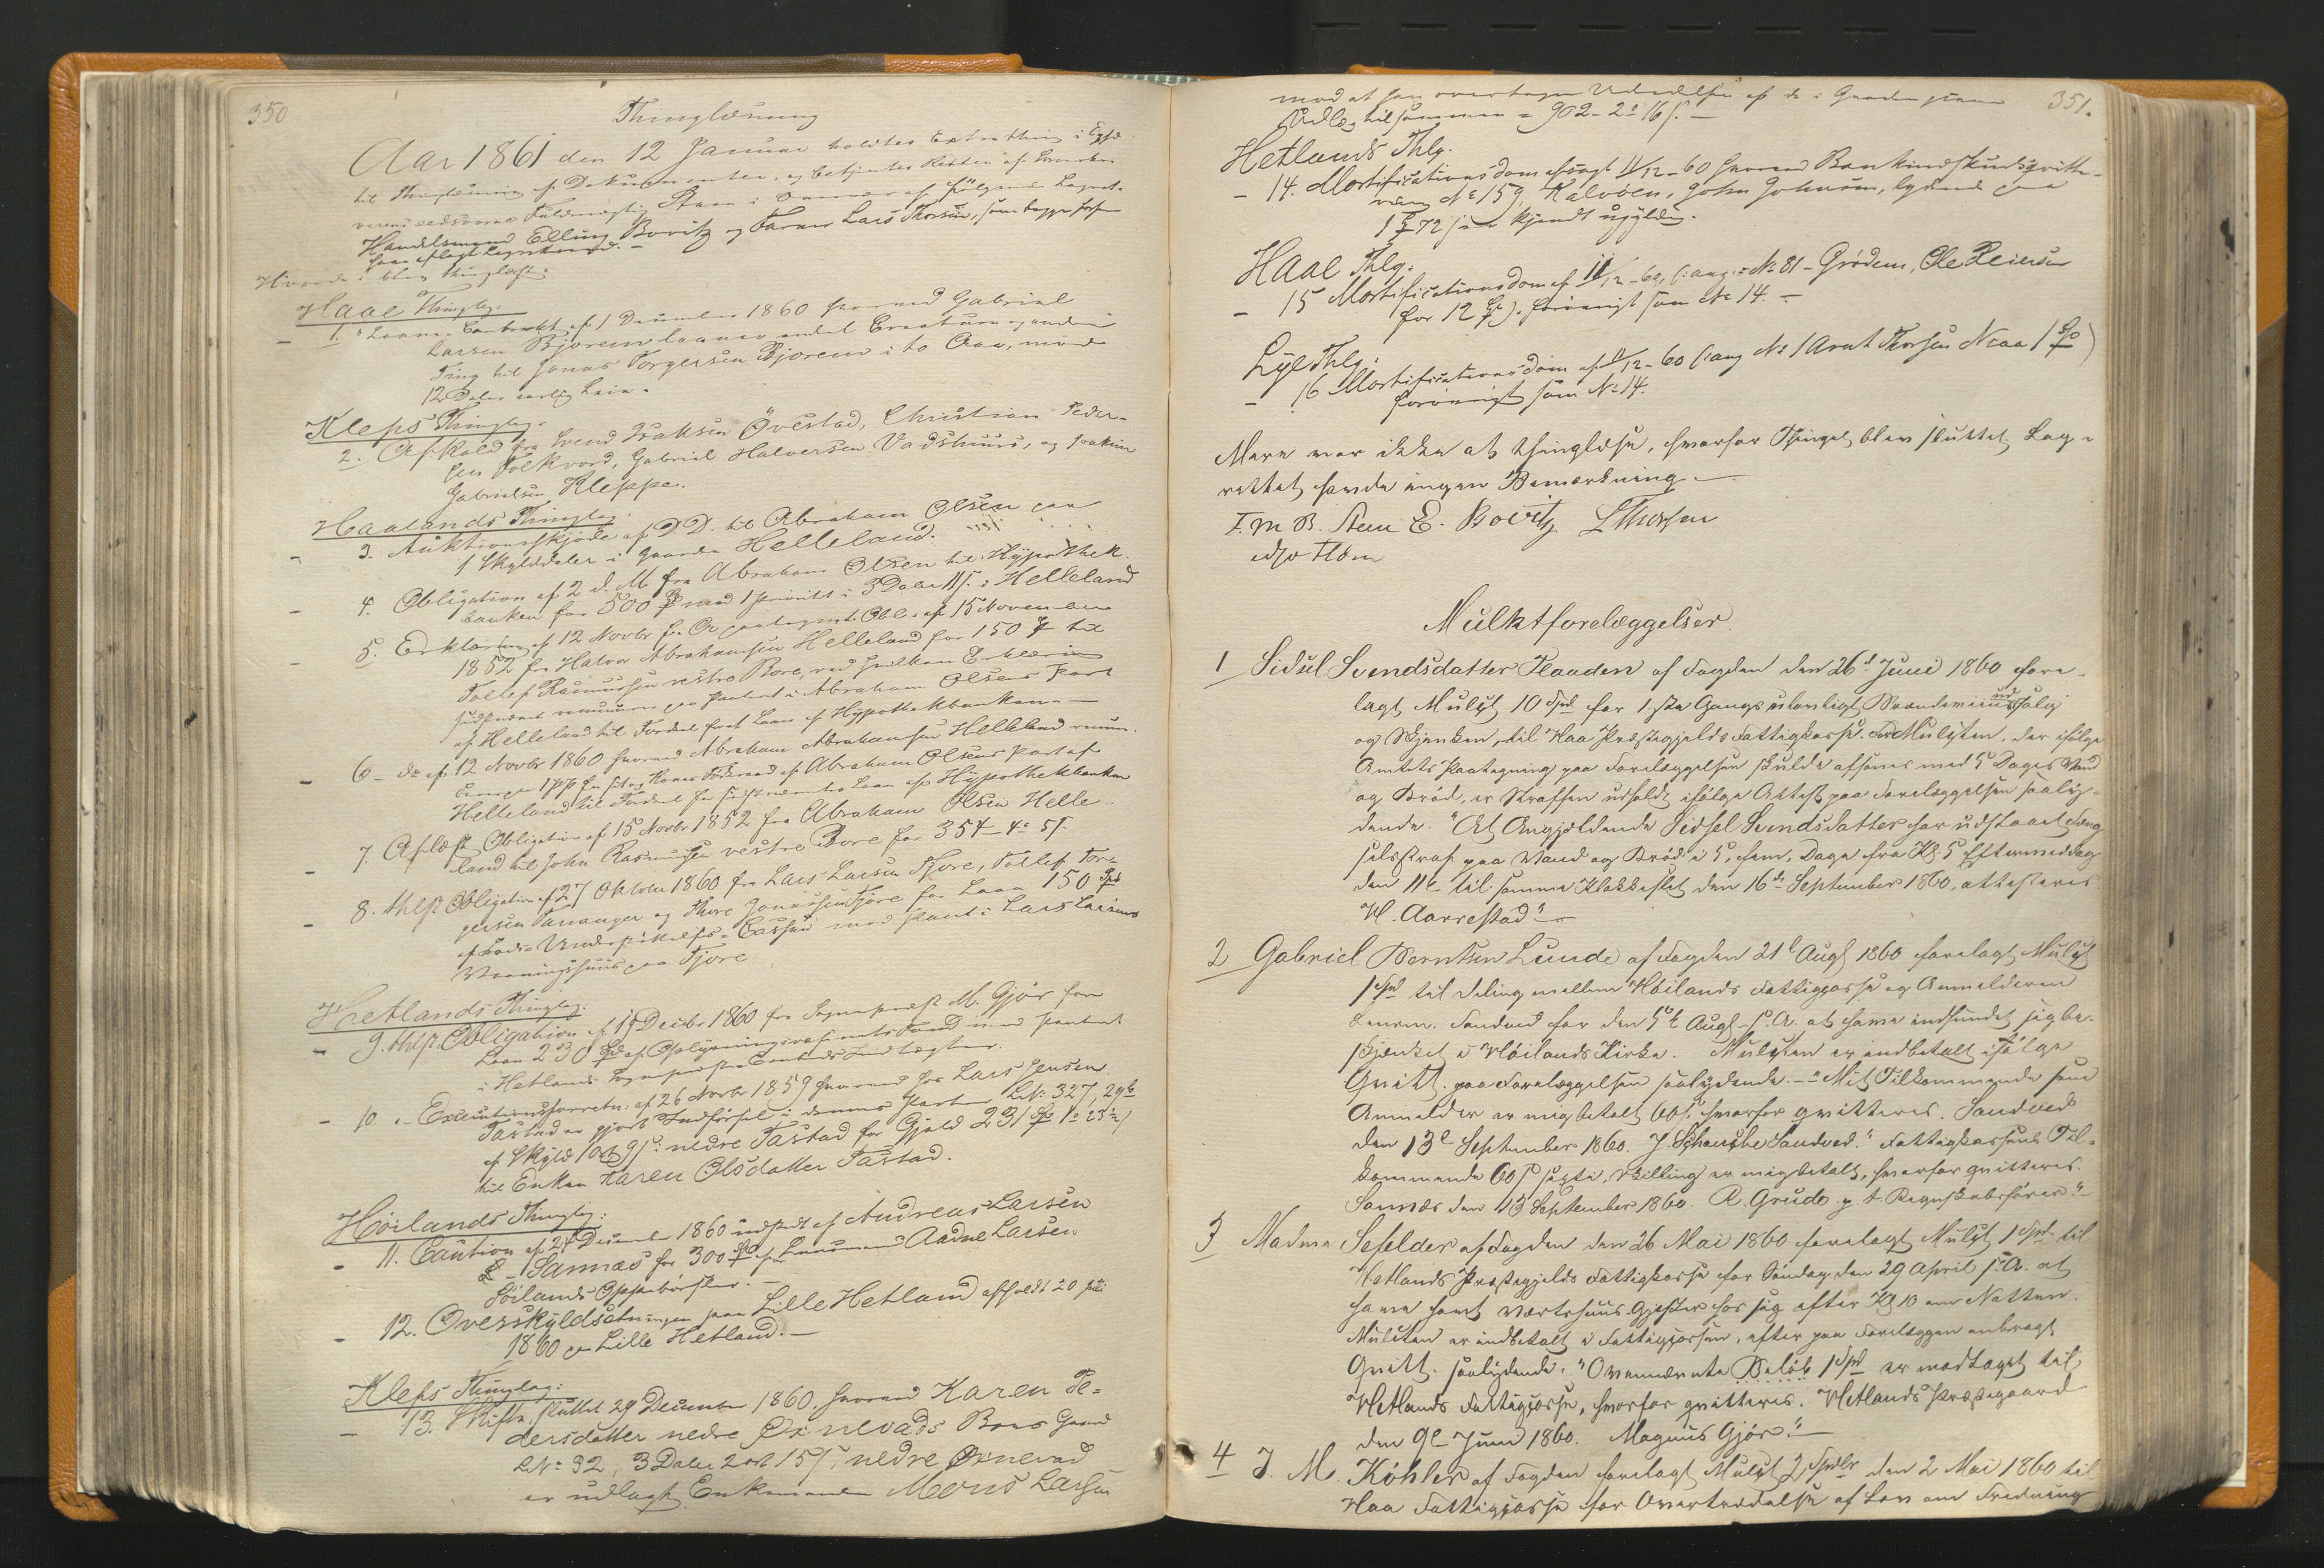 350
Thinglæsning
Aar 1861 den 12 Januar holdtes Extrathing i Egge
til Thinglæsning af Dokumenter, og betjentes Retten af Soren-
veiens edsvorne Fuldmægtig Steen i Overvær af følgende Lagret-
Handelsmand Elling Bovitz og Farver Lars Thorsen, som begge forhen
have aflagt Lagrettesed.
Hvorda blev thinglæst:
Haae Thinglag:
1. Laane Contrakt af 1 December 1860 hvorved Gabriel
Larsen Bjorem laaner endel Creaturer og andre
Ting til Jonas Torgersen Bjorem i to Aar, mod
12 Daler aarlig Leie.
Kleps Thinglag.
2. Afkald fra Svend Isaksen Övestad, Christian Peder-
sen Folkvord, Gabriel Halvorsen Vadshuus, og Joakim
Gabrielsen Kleppe.
Haalands Thinglag.
3. Auktionsskjøde af D. D. til Abraham Olsen paa
1 Skylddaler i Gaarden Helleland.
4. Obligation af 2 d. M. fra Abraham Olsen til Hypothek-
banken for 500 Spd mod 1 Prioritet i 3 Daler 11 s. i Helleland
5. Erklæring af 12 Novbr fra Ov paategnet Obl. af 15 November
1852 fra Halvor Abrahamsen Helleland for 150 Spd til
Tollef Rasmussen vestre Bore, ved hvilken Erklæring
sidstnævnte renuncerer paa Pantet i Abraham Olsens Part
af Helleland til Fordel for et Laan af Hypothekbanken.
6 - do af 12 Novbr 1860 hvorved Abraham Abrahamsen Helleland renun-
cerer paa 1 pp for sit og Kones Föderaad af Abraham Olsens Part af
Helleland til Fordel for sidstnævntes Laan af Hypothekbanken
7. Aflæst Obligation af 15 Novbr 1852 fra Abraham Olsen Helle-
land til John Rasmussen vestre Bore for 354 - 4 o 5 s.
8. thlst Obligation af 27 Oktober 1860 fra Lars Larsen Tjore, Tollef Tor-
gersen Tananger og Thore Jonassen Tjore for Laan 150 Spd
af Lods-Understøttelses-Cassen mod Pant i Lars Larsens
Vaaningshuus paa Tjore
Hetlands Thinglag:
9. thlst. Obligation af 15 Decbr 1860 fra Sognepræst M. Gjör for
Laan 230 Spd af Oplysningsvæsenets Fond med Pantret
i Hetlands Sognepræste Embeds Indtægter.
10. Executionsforretn. af 26 Novbr 1859 hvorved hos Lars Jensen
Tastad er gjort Indförsel i dennes Parter L. No 327, 29 b
af Skyld 1 ort 9 s. i nedre Tastad for Gjæld 231 Spd 1 o 23½ s
til Enken Karen Olsdatter Tastad.
Höilands Thinglag:
11. Caution af 27 December 1860 indstedt af Andreas Larsen
Sannæs for 300 Spd for Lensmand Aadne Larsen
Höilands Oppebörsler.
12. Overskyldsetningen paa Lille Hetland afholdt 20 Juli
1860 paa Lille Hetland.
Kleps Thinglag:
13. Skifte, sluttet 29 December 1860, hvorved Karen Pe-
dersdatter nedre Øxnevads Boes Gaard
L. No 32, 3 Daler 2 ort 15 s. i nedre Øxnevad
er udlagt Enkemanden Mons Larsen
351.
mod at han overtager Udredelsen af de i Gaarden gjorte
Udlæg tilsammen = 902 - 2 o 16 s.
Hetlands Thlg.
14. Mortificationsdom afsagt 11/12 - 60 hvorved Bankindskudsqvitte-
ring No 159, Kalvöen, John Johnsen, lydende paa
1 Spd 72 s er kjendt ugyldig.
Haae Thlg.
15 Mortificationsdom af 11/12 - 60, (: ang: No 81 - Grödem, Ole Reiersen
for 12 Spd). forövrigt som No 14.
Lye Thlg.
16 Mortificationsdom af 11/12 - 60 (: ang No 1 Arnt Thorsen Neaa 1 Spd)
forövrigt som No 14.
Mere var ikke at thinglæse, hvorfor Thinget blev sluttet. Lag-
rettet havde ingen Bemærkning.
T. M. B. Steen E. Bovitz. L Thorsen
Mulktforelæggelser
1 Sidsel Svendsdatter Flaaden af Fogden den 26d Juni 1860 fore-
lagt Mulkt 10 Spd for 1ste Gangs ulovligt Brændeviinsudsalg
og Skjenken, til Haa Præstegjelds Fattigkasse. For Mulkten, der ifölge
Amtets Paategning paa Forelæggelsen skulde afsones med 5 Dages Vand
og Bröd, er Straffen udholdt ifölge Attest paa Forelæggelsen saaly-
dende: "At Angjældende Sidsel Svendsdatter har udstaaet Fæng
selsstraf paa Vand og Bröd i 5, fem, Dage fra Kl. 5 Eftermiddag
den 11te til samme Klokkeslet den 16de September 1860, attesteres
H. Aarrestad."
2 Gabriel Berntsen Lunde af Fogden 21d Augt 1860 forelagt Mulkt
1 Spd til Deling mellem Höilands Fattigkasse og Anmelderen
Lensm. Sandved for den 5te Augt s. A. at have indfundet sig be-
skjænket i Höilands Kirke. Mulkten er indbetalt ifölge
Qvitt. paa Forelæggelsen saalydende: "Mit Tilkommende som
Anmelder er mig betalt 60 s. hvorfor qvitteres. Sandved
den 13e September 1860. J. Schanche Sandved." Fattigkassens Til-
kommende 60 s sexti, Skilling er mig betalt, hvorfor qvitteres.
Sannæs den 13 September 1860. A. Grude p. t. Regnskabsfører."
3 Madme Sefelder af Fogden den 26 Mai 1860 forelagt Mulkt 1 Spd til
Hetlands Præstegjelds Fattigkasse for Söndag den 29 April s. A. at
have havt Vertshuus-Gjester hos sig efter Kl 10 om Natten.
Mulkten er indbetalt i Fattigkassen, efter paa Forelæggen anbragt
Qvitt. saalydende: "Ovennævnte Belöb 1 Spd er modtaget til
Hetlands Fattigkasse, hvorfor qvitteres. Hetlands Præstegaard
den 9e Juni 1860. Magnus Gjör."
4 J. M. Köhler af Fogden forelagt Mulkt 2 Spdlr den 2 Mai 1860 til
Haa Fattigkasse for Overtrædelse af Lov om Fredning